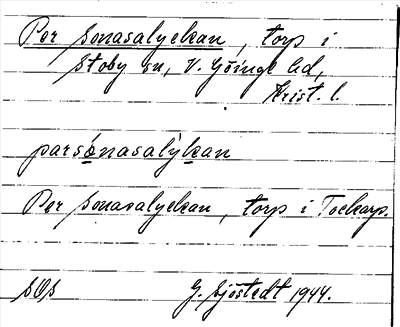 Per Sonasalyckan, torp i
Stoby sn, V. Göinge hd,
Krist. l.
parsònasalýkan
Per Sonasalyckan, torp i Tockarp.
SOS G. Sjöstedt 1944.